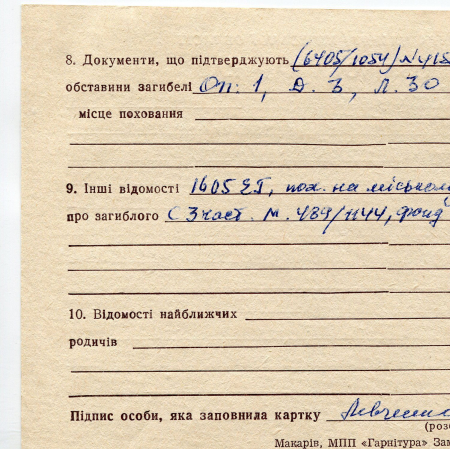 8. Документи, що підтверджують (6405/1054) N 415
обставини загибелі Оп. 1, Д. 3, Л. 30
місце поховання
9. Інші відомості 1605 ЕГ, пох. на міському
про загиблого (3 част. м. 489/1144, фонд
10. Відомості найближчих
родичів
Підпис особи, яка заповнила картку
(роз
Макарів, МПП «Гарнітура» Зам